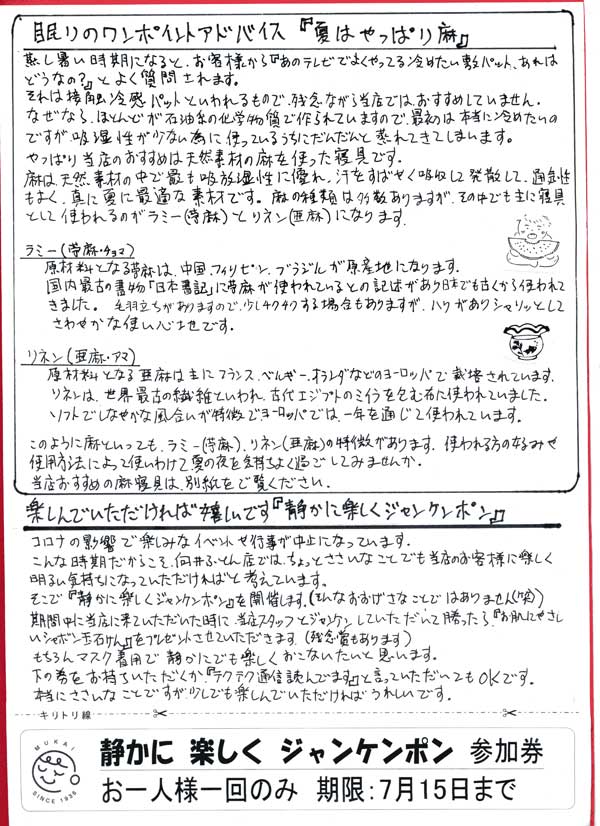 眠りのワンポイントアドバイス『夏はやっぱり麻』
蒸し暑い時期になると、お客様から『あのテレビでよくやってる冷めたい敷パット、あれは
どうなの?』とよく質問されます。
それは接触冷感パットといわれるもので、残念ながら当店ではおすすめしていません。
なぜなら、ほとんどが石油系の化学物質で作られていますので、最初は本当に冷めたいの
ですが吸湿性が少ない為に使っているうちにだんだんと蒸れてきてしまいます。
やっぱり当店のおすすめは天然素材の麻を使った寝具です。
麻は、天然素材の中で最も吸放湿性に優れ、汗をすばやく吸収して発散して、通気性
もよく、真に夏に最適な素材です。麻の種類は多数ありますが、その中でも主に寝具
として使われるのがラミー(苧麻)とリネン(亜麻)になります。
ラミー(苧麻・チョマ)
原材料となる苧麻は、中国、フィリピン、ブラジルが原産地になります。
国内最古の書物「日本書記」に苧麻が使われているとの記述があり日本でも古くから使われて
きました。毛羽立ちがありますので、少しチクチクする場合もありますが、ハリがありシャリッとして
さわやかな使い心地です。
リネン(亜麻・アマ)
原材料となる亜麻は主にフランス、ベルギー、オランダなどのヨーロッパで栽培されています。
リネンは、世界最古の繊維といわれ、古代エジプトのミイラを包む布に使われていました。
ソフトでしなやかな風合いが特徴でヨーロッパでは、一年を通じて使われています。
このように麻といっても、ラミー(苧麻)、リネン(亜麻)の特徴があります。使われる方の好みや
使用方法によって使いわけて夏の夜を気持ちよく過ごしてみませんか。
当店おすすめの麻寝具は、別紙をご覧ください。
楽しんでいただければ嬉しいです『静かに楽しくジャンケンポン』
コロナの影響で楽しみなイベントや行事が中止になっています。
こんな時期だからこそ、向井ふとん店では、ちょっとささいなことでも当店のお客様に楽しく
明るい気持ちになっていただければと考えています。
そこで『静かに楽しくジャンケンポン』を開催します。(そんなおおげさなことではありません(笑))
期間中に当店に来ていただいた時に、当店スタッフとジャンケンしていただいて勝ったら、『お肌にやさし
いシャボン玉石けん』をプレゼントさせていただきます。(残念賞もあります)
もちろんマスク着用で静かにでも楽しくおこないたいと思います。
下の券をお持ちいただくか『テクテク通信読んでます』と言っていただいてもOKです。
本当にささいなことですが少しでも楽しんでいただければうれしいです。
キリトリ線
MUKAI
SINCE 1936
静かに 楽しく ジャンケンポン 参加券
お一人様一回のみ 期限:7月15日まで